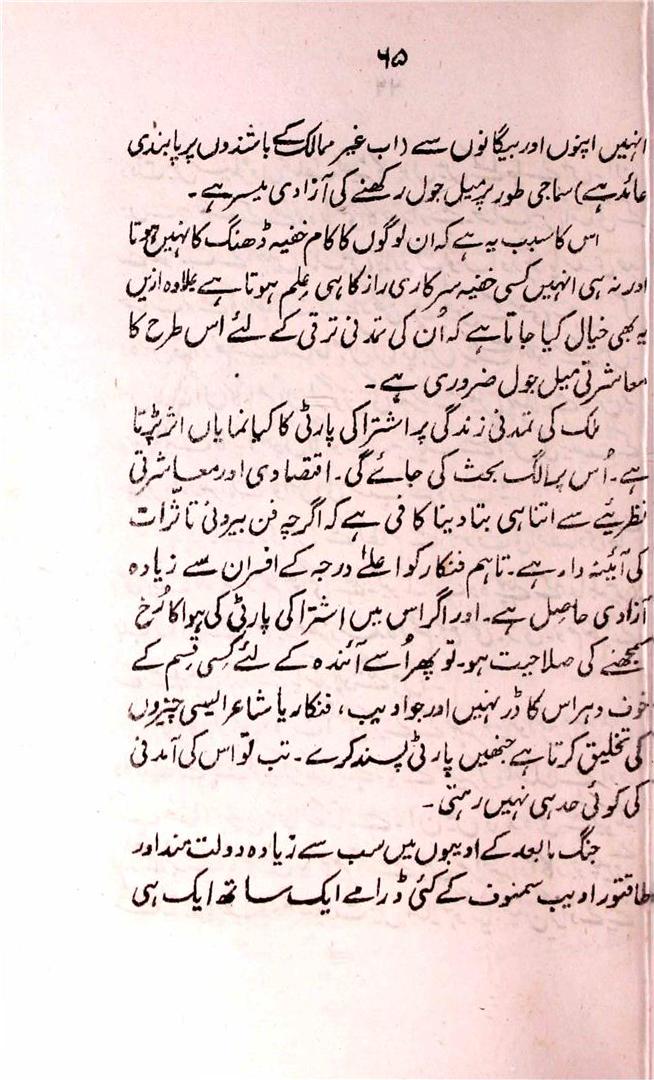 ۶۵
انہیں اپنوں اور بیگانوں سے (اب غیر ممالک کے باشندوں پر پابندی
عائد ہے) سماجی طور پر میل جول رکھنے کی آزادی میسر ہے۔
اس کا سبب یہ ہے کہ ان لوگوں کا کام خفیہ ڈھنگ کا نہیں ہوتا
اور نہ ہی انہیں کسی خفیہ سرکاری راز کا ہی عِلم ہوتا ہے علاوہ ازیں
یہ بھی خیال کیا جاتا ہے کہ اُن کی تمدنی ترقی کے لئے اس طرح کا
معاشرتی میل جول ضروری ہے۔
ملک کی تمدنی زندگی پر اشتراکی پارٹی کا کیا نمایاں اثر پڑتا
ہے۔ اُس پر الگ بحث کی جائے گی۔ اقتصادی اور معاشرتی
نظریئے سے اتنا ہی بتا دینا کافی ہے کہ اگرچہ فن بیرونی تاثرات
کی آئینہ دار ہے۔ تاہم فنکار کو اعلیٰ درجہ کے افسران سے زیادہ
آزادی حاصل ہے۔ اور اگر اس میں اشتراکی پارٹی کی ہوا کا رُخ
سمجھنے کی صلاحیت ہو۔ تو پھر اُسے آئندہ کے لئے کِسی قِسم کے
خوف و ہراس کا ڈر نہیں اور جو ادیب، فنکار یا شاعر ایسی چیزوں
کی تخلیق کرتا ہے جنھیں پارٹی پسند کرے۔ تب تو اس کی آمدنی
کی کوئی حد ہی نہیں رہتی۔
جنگ مابعد کے ادیبوں میں سب سے زیادہ دولت مند اور
طاقتور ادیب سمنوف کے کئی ڈرامے ایک ساتھ ایک ہی